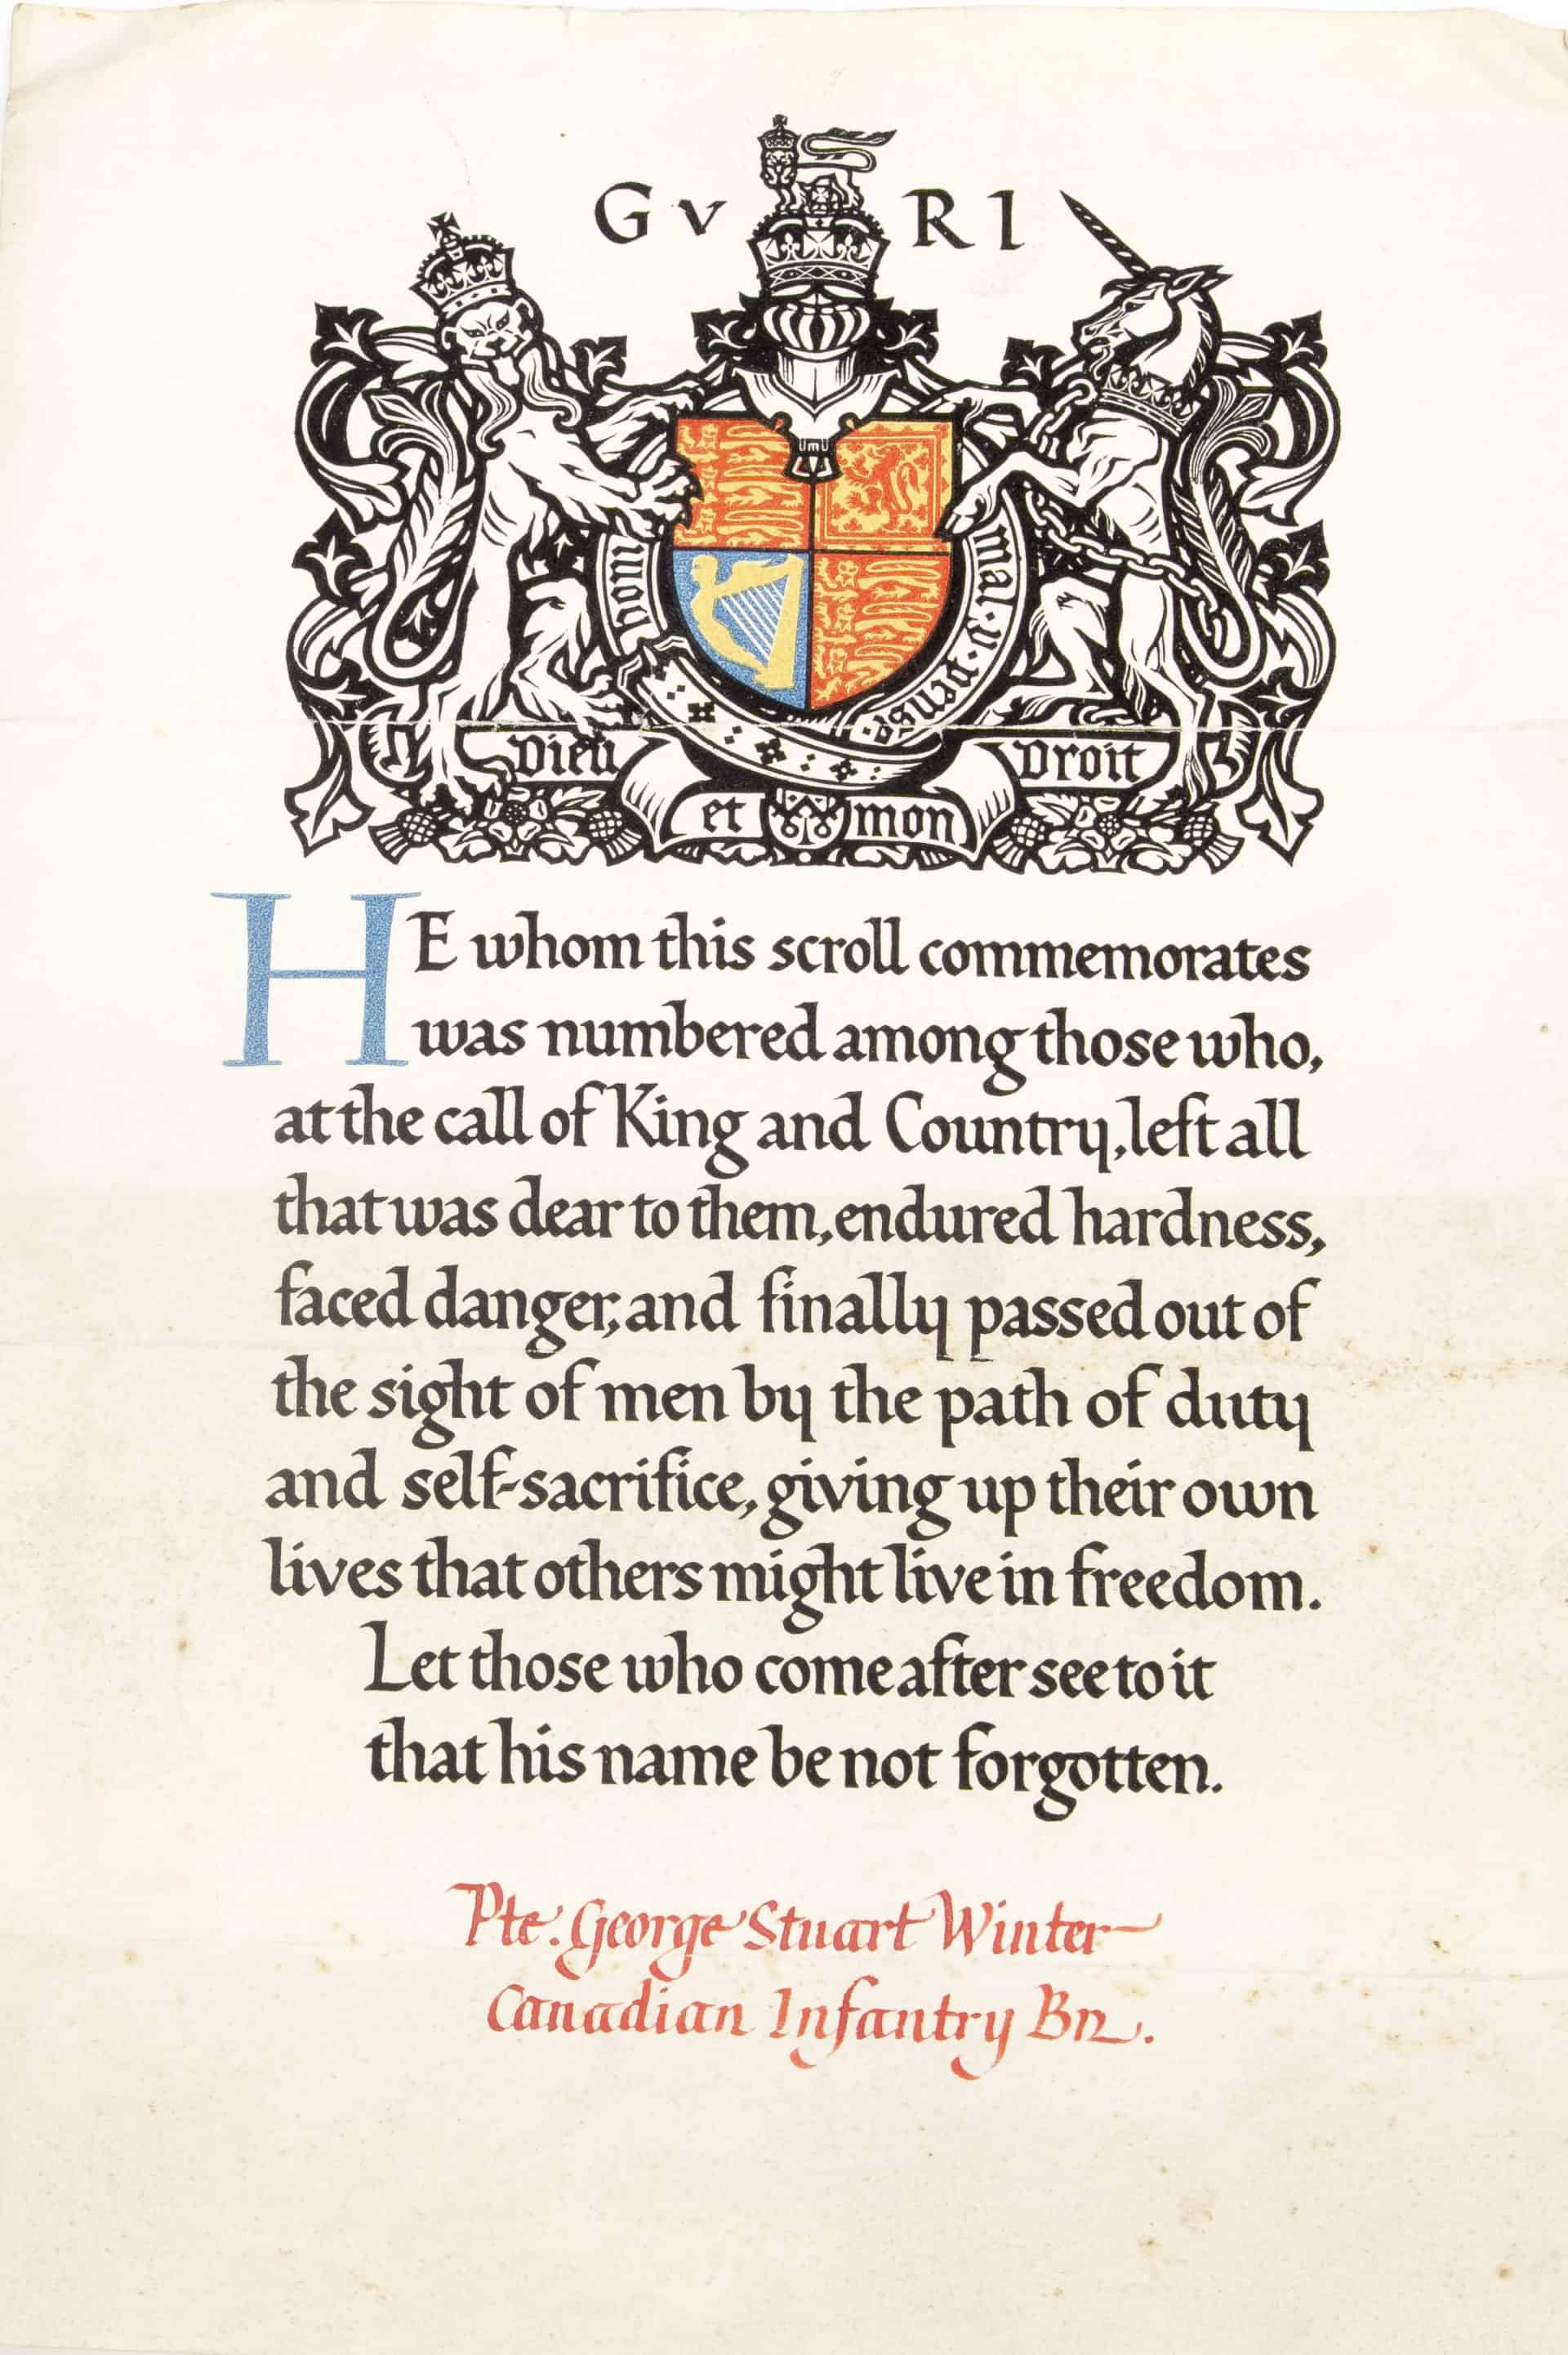 G V R I
honi mal·y·pense·
Dieu Droit
et mon
HE whom this scroll commemorates
was numbered among those who,
at the call of King and Country, left all
that was dear to them, endured hardness,
faced danger, and finally passed out of
the sight of men by the path of duty
and self-sacrifice, giving up their own
lives that others might live in freedom.
Let those who come after see to it
that his name be not forgotten.
Pte. George Stuart Winter
Canadian Infantry Bn.